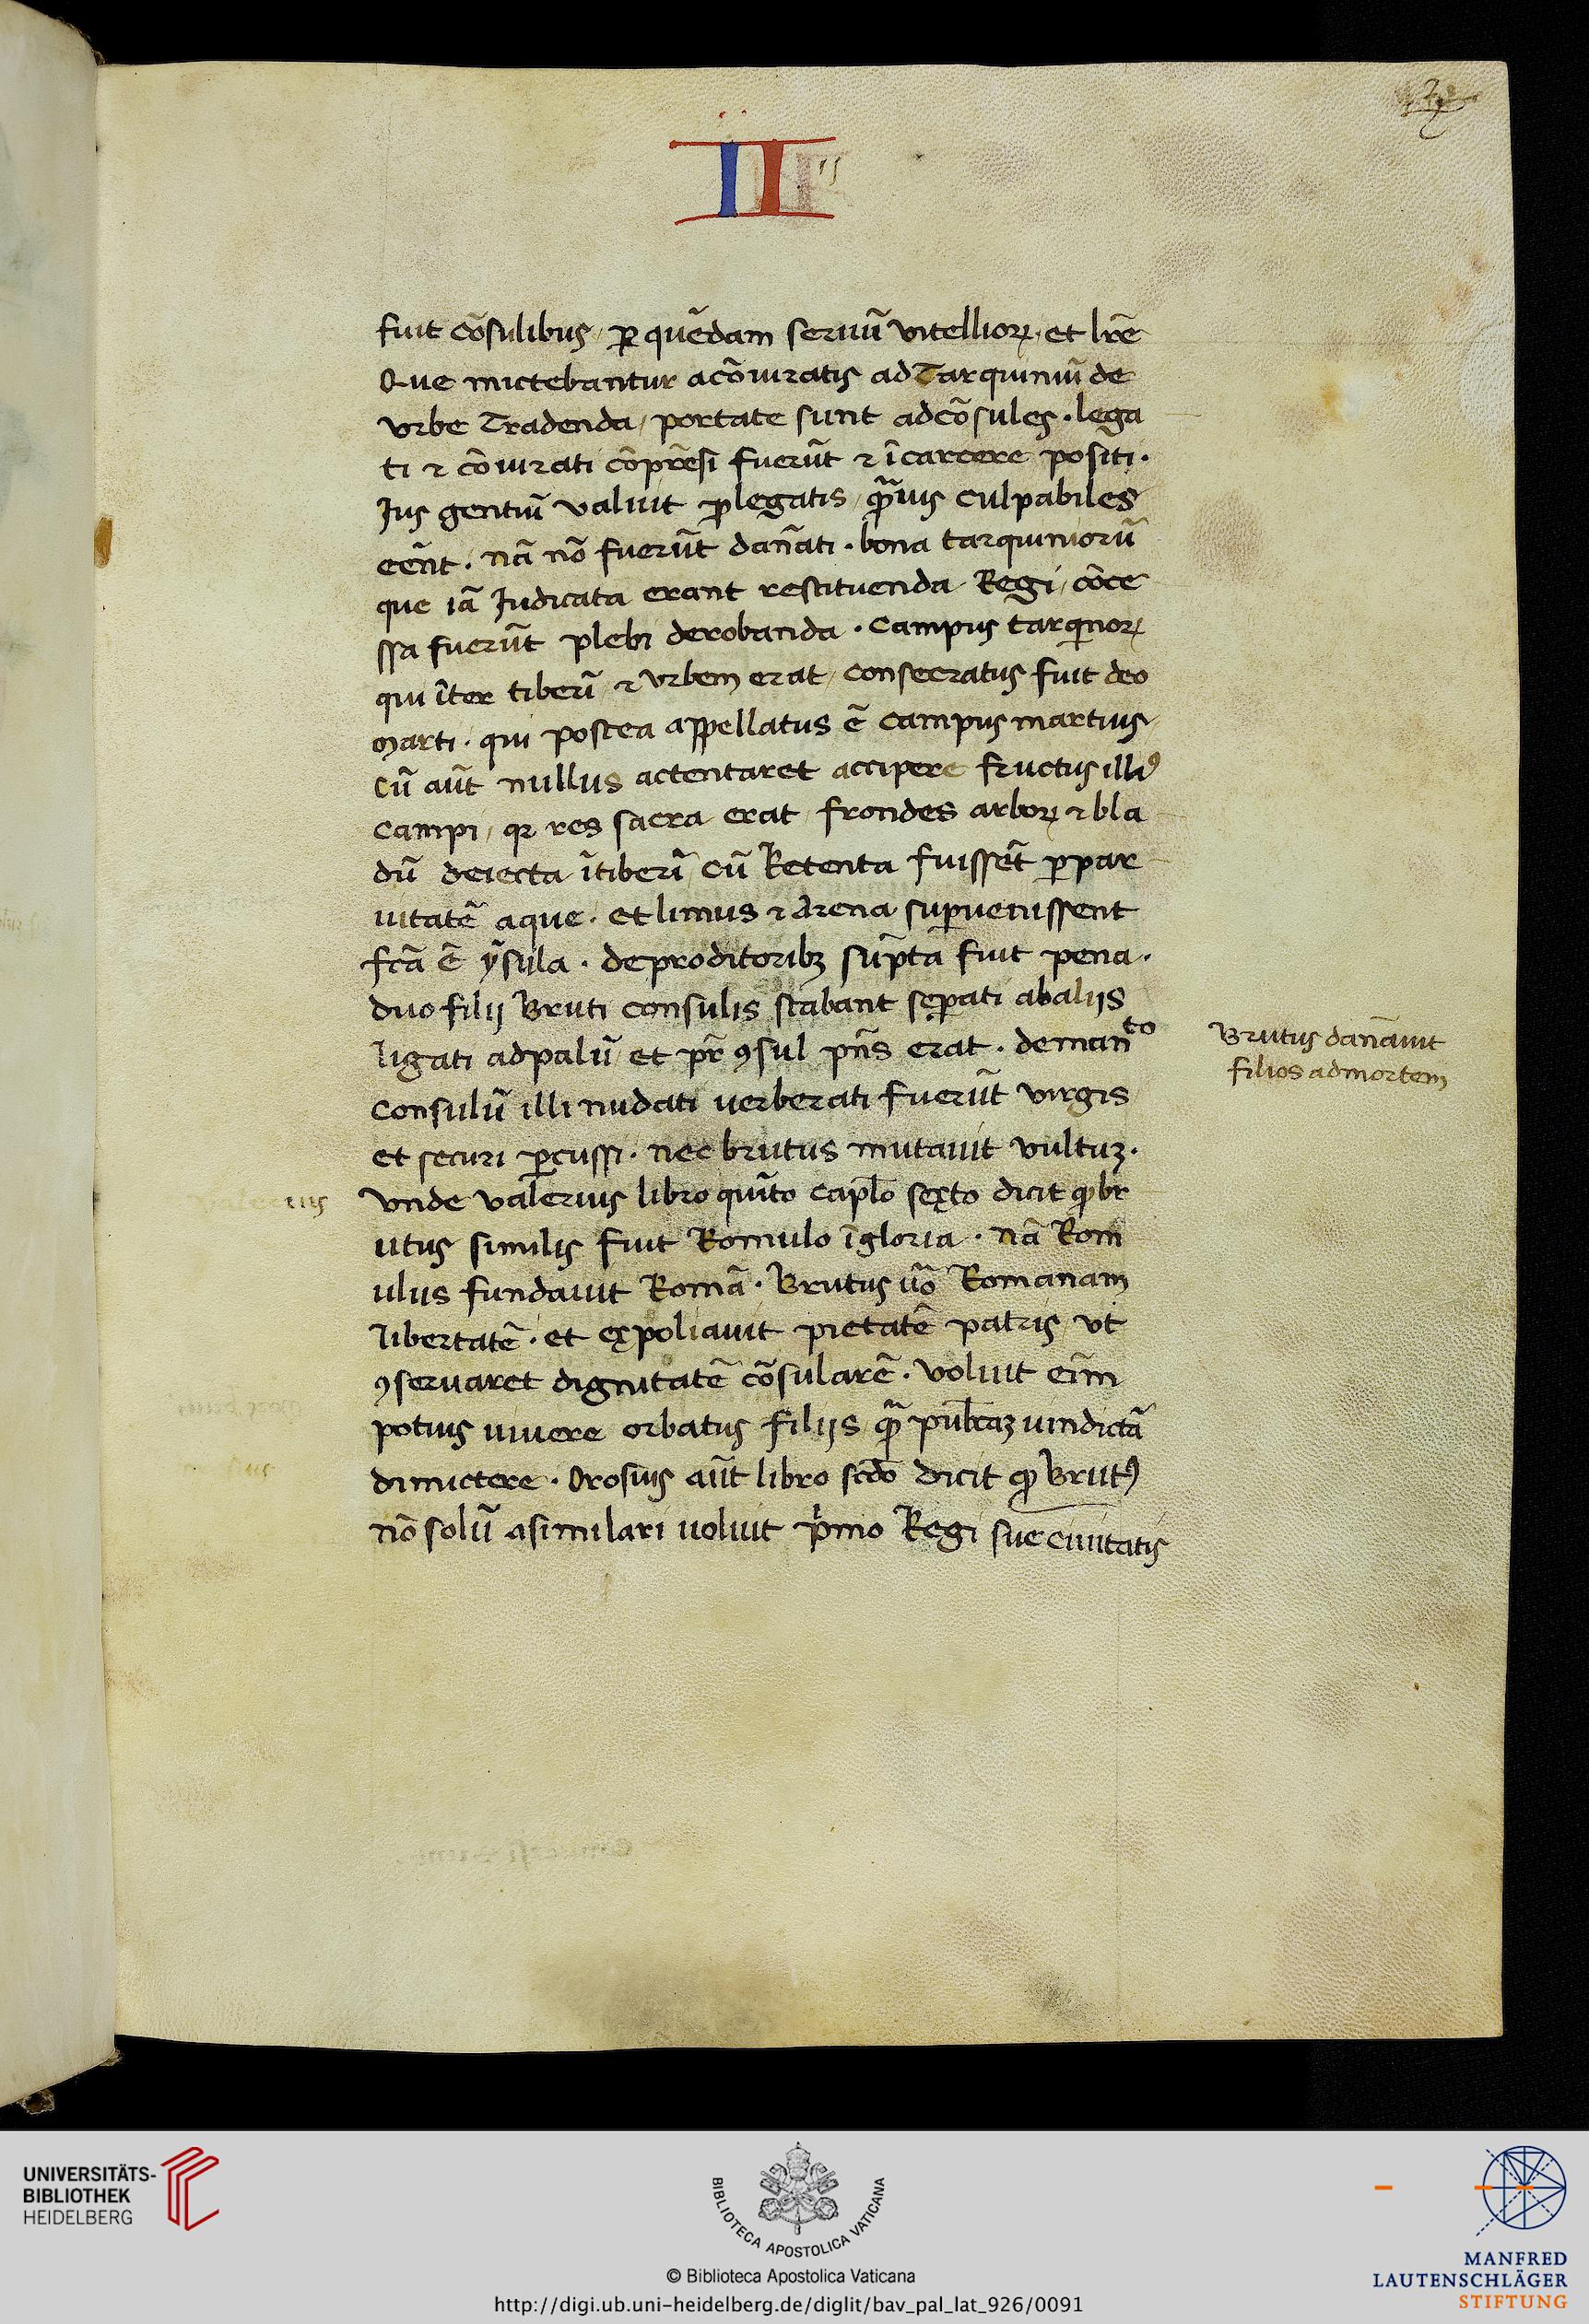 II
fuit cõsulibus / ꝑ quẽdam seruũ vitellioꝝ / et lr̃e
Que mictebantur acõiuratis ad Tarquiniũ de
vrbe Tradenda / portate sunt adcõsules · lega
ti ⁊ cõiurati cõpr̃esi fuerũt ⁊ ĩcarcere positi ·
Jus gentiũ valuit ꝓlegatis / qͣ̃uis culpabiles
eẽnt · nã nõ fuerũt dañati · bona tarquiniorũ
que iã Judicata erant restituenda Regi / cõce
ssa fuerũt plebi derobanda · Campus tarqͥnoꝝ
qui ĩter tiberĩ ⁊ vrbem erat / consecratus fuit deo
marti · qui postea appellatus ẽ campus martius /
Cũ aũt nullus actentaret accipere fructus illiꝰ
campi / qꝛ res sacra erat / frondes arboꝝ ⁊ bla
dũ deiecta ĩtiberĩ cũ Retenta fuissẽt ꝑpar
uitatẽ aque · et limus ⁊ Arena suꝑuenissent
fc̃a ẽ ỹsula · deproditoribꝫ sũpta fuit pena ·
duo filij Bruti consulis stabant seꝑati abalijs
ligati adpalũ / et pr̃ ꝯsul pñs erat · demanᵗᵒ
Consulũ illi nudati uerberati fuerũt virgis
et securi ꝑcussi · nec brutus mutauit vultuꝫ ·
vnde valerius libro quĩto capl̃o sexto dicit ꝙ br
utus similis fuit Romulo ĩgloria · nã Rom
ulus fundauit Romã · Brutus ũo Romanam
libertatẽ · et expoliauit pietatẽ patris / vt
ꝯseruaret dignitatẽ cõsularẽ · voluit eĩm
potius uiuere orbatus filijs / qͣ̃ publ̃caꝫ uindictã
dimictere · Orosius aũt libro scd̃o dicit ꝙ Brutꝰ
nõ solũ asimilari uoluit pͥmo Regi sue ciuitatis
Brutus dañauit
filios admortem
UNIVERSITÄTS-
BIBLIOTHEK
HEIDELBERG
BIBLIOTECA APOSTOLICA VATICANA
© Biblioteca Apostolica Vaticana
http://digi.ub.uni-heidelberg.de/diglit/bav_pal_lat_926/0091
MANFRED
LAUTENSCHLÄGER
STIFTUNG